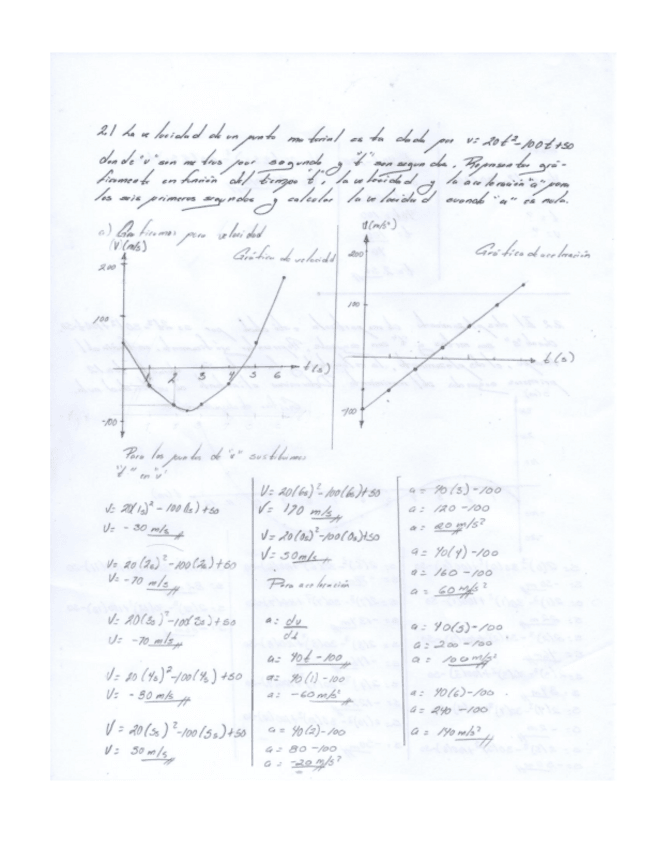 2.1 La velocidad de un punto material esta dada por v= 20t²-100t+50
donde "v" son metros por segundo y "t" son segundos. Representar grá-
ficamente en función del tiempo "t", la velocidad y la aceleración "a" para
los seis primeros segundos y calcular la velocidad cuando "a" es nula.
a) Graficamos para velocidad
(V)(m/s)
Gráfica de velocidad
200
100
-100
1 2 3 4 5 6 t(s)
Gráfica de aceleración
200
100
-100
t(s)
Para los puntos de "v" sustituimos
"t" en "v"
V= 20(1s)²-100(1s)+50
V= -30 m/s
V= 20(2s)²-100(2s)+50
V= -70 m/s
V= 20(3s)²-100(3s)+50
V= -70 m/s
V= 20(4s)²-100(4s)+50
V= -30 m/s
V= 20(5s)²-100(5s)+50
V= 50 m/s
V= 20(6s)²-100(6s)+50
V= 170 m/s
V= 20(0s)²-100(0s)+50
V= 50 m/s
Para aceleración
a= dv
dt
a= 40t-100
a= 40(1)-100
a= -60 m/s²
a= 40(2)-100
a= 80-100
a= -20 m/s²
a= 40(3)-100
a= 120-100
a= 20 m/s²
a= 40(4)-100
a= 160-100
a= 60 m/s²
a= 40(5)-100
a= 200-100
a= 100 m/s²
a= 40(6)-100
a= 240-100
a= 140 m/s²